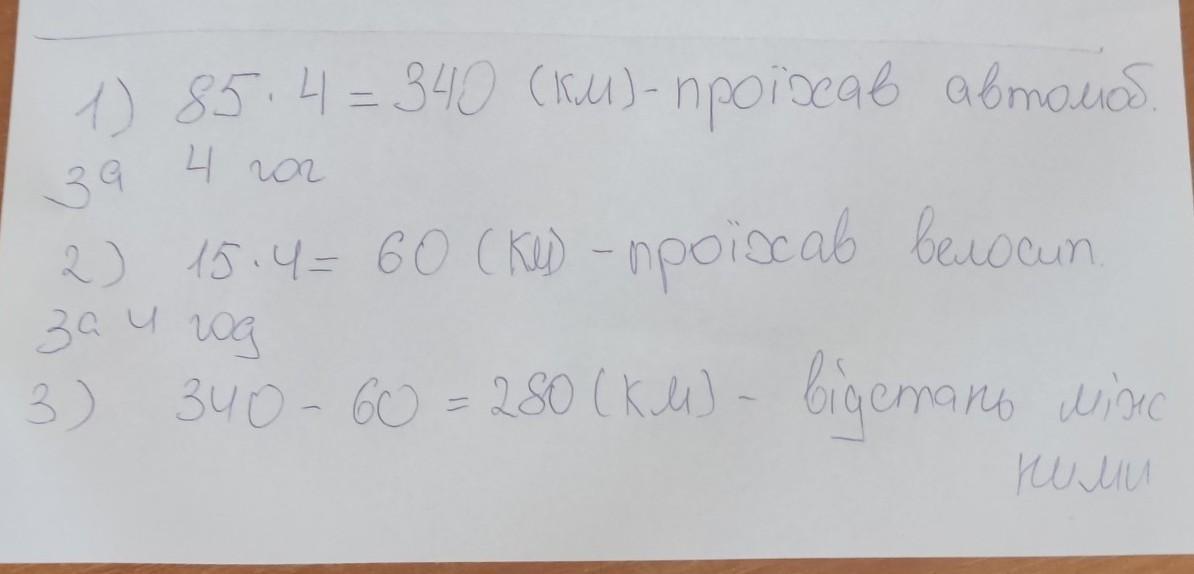 1) 85 · 4 = 340 (км) - проїхав автомоб.
за 4 год
2) 15 · 4 = 60 (км) - проїхав велосип.
за 4 год
3) 340 - 60 = 280 (км) - відстань між
ними